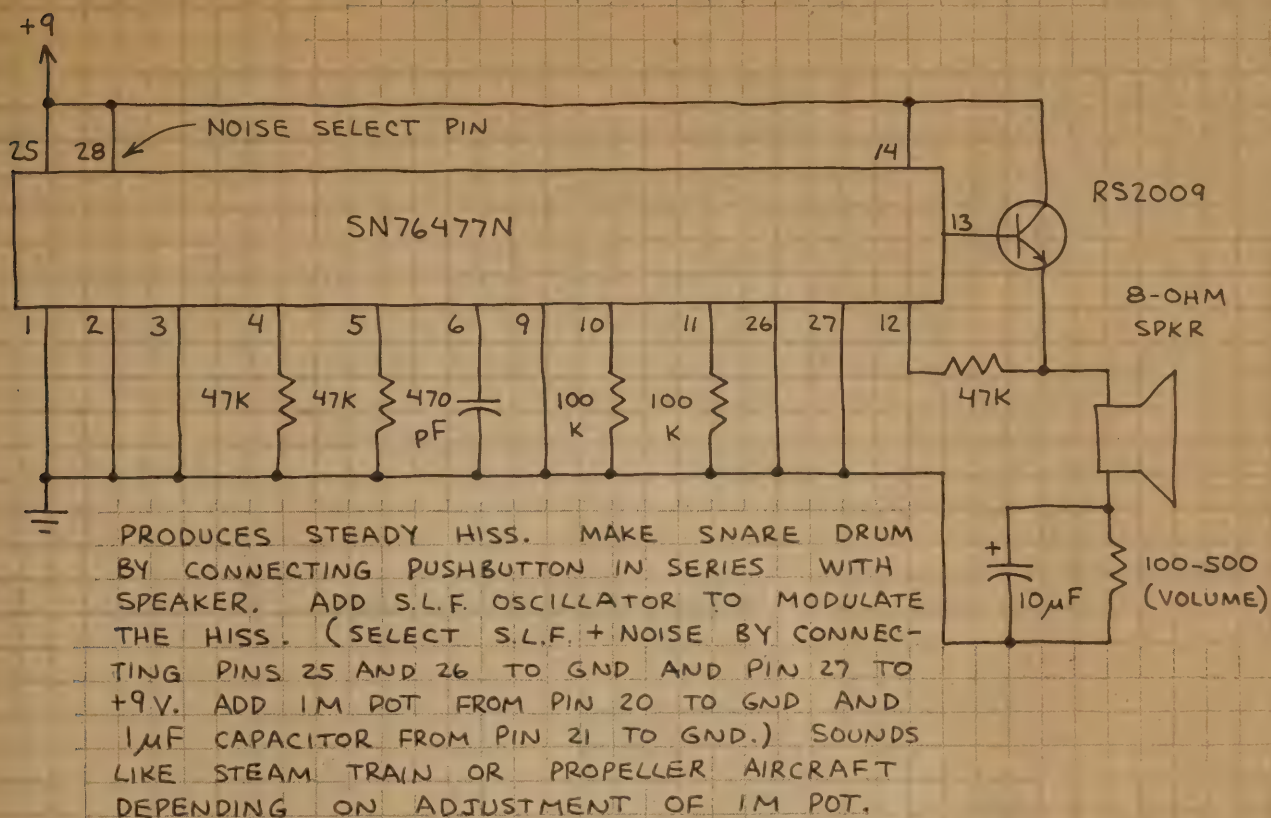 +9
NOISE SELECT PIN
25 28 14
SN76477N
13
RS2009
8-OHM
SPKR
1 2 3 4 5 6 9 10 11 26 27 12
47K 47K 470 pF 100 K 100 K 47K
PRODUCES STEADY HISS. MAKE SNARE DRUM
BY CONNECTING PUSHBUTTON IN SERIES WITH
SPEAKER. ADD S.L.F. OSCILLATOR TO MODULATE
THE HISS. (SELECT S.L.F. + NOISE BY CONNEC-
TING PINS 25 AND 26 TO GND AND PIN 27 TO
+9V. ADD 1M POT FROM PIN 20 TO GND AND
1µF CAPACITOR FROM PIN 21 TO GND.) SOUNDS
LIKE STEAM TRAIN OR PROPELLER AIRCRAFT
DEPENDING ON ADJUSTMENT OF 1M POT.
+
10µF
100-500
(VOLUME)